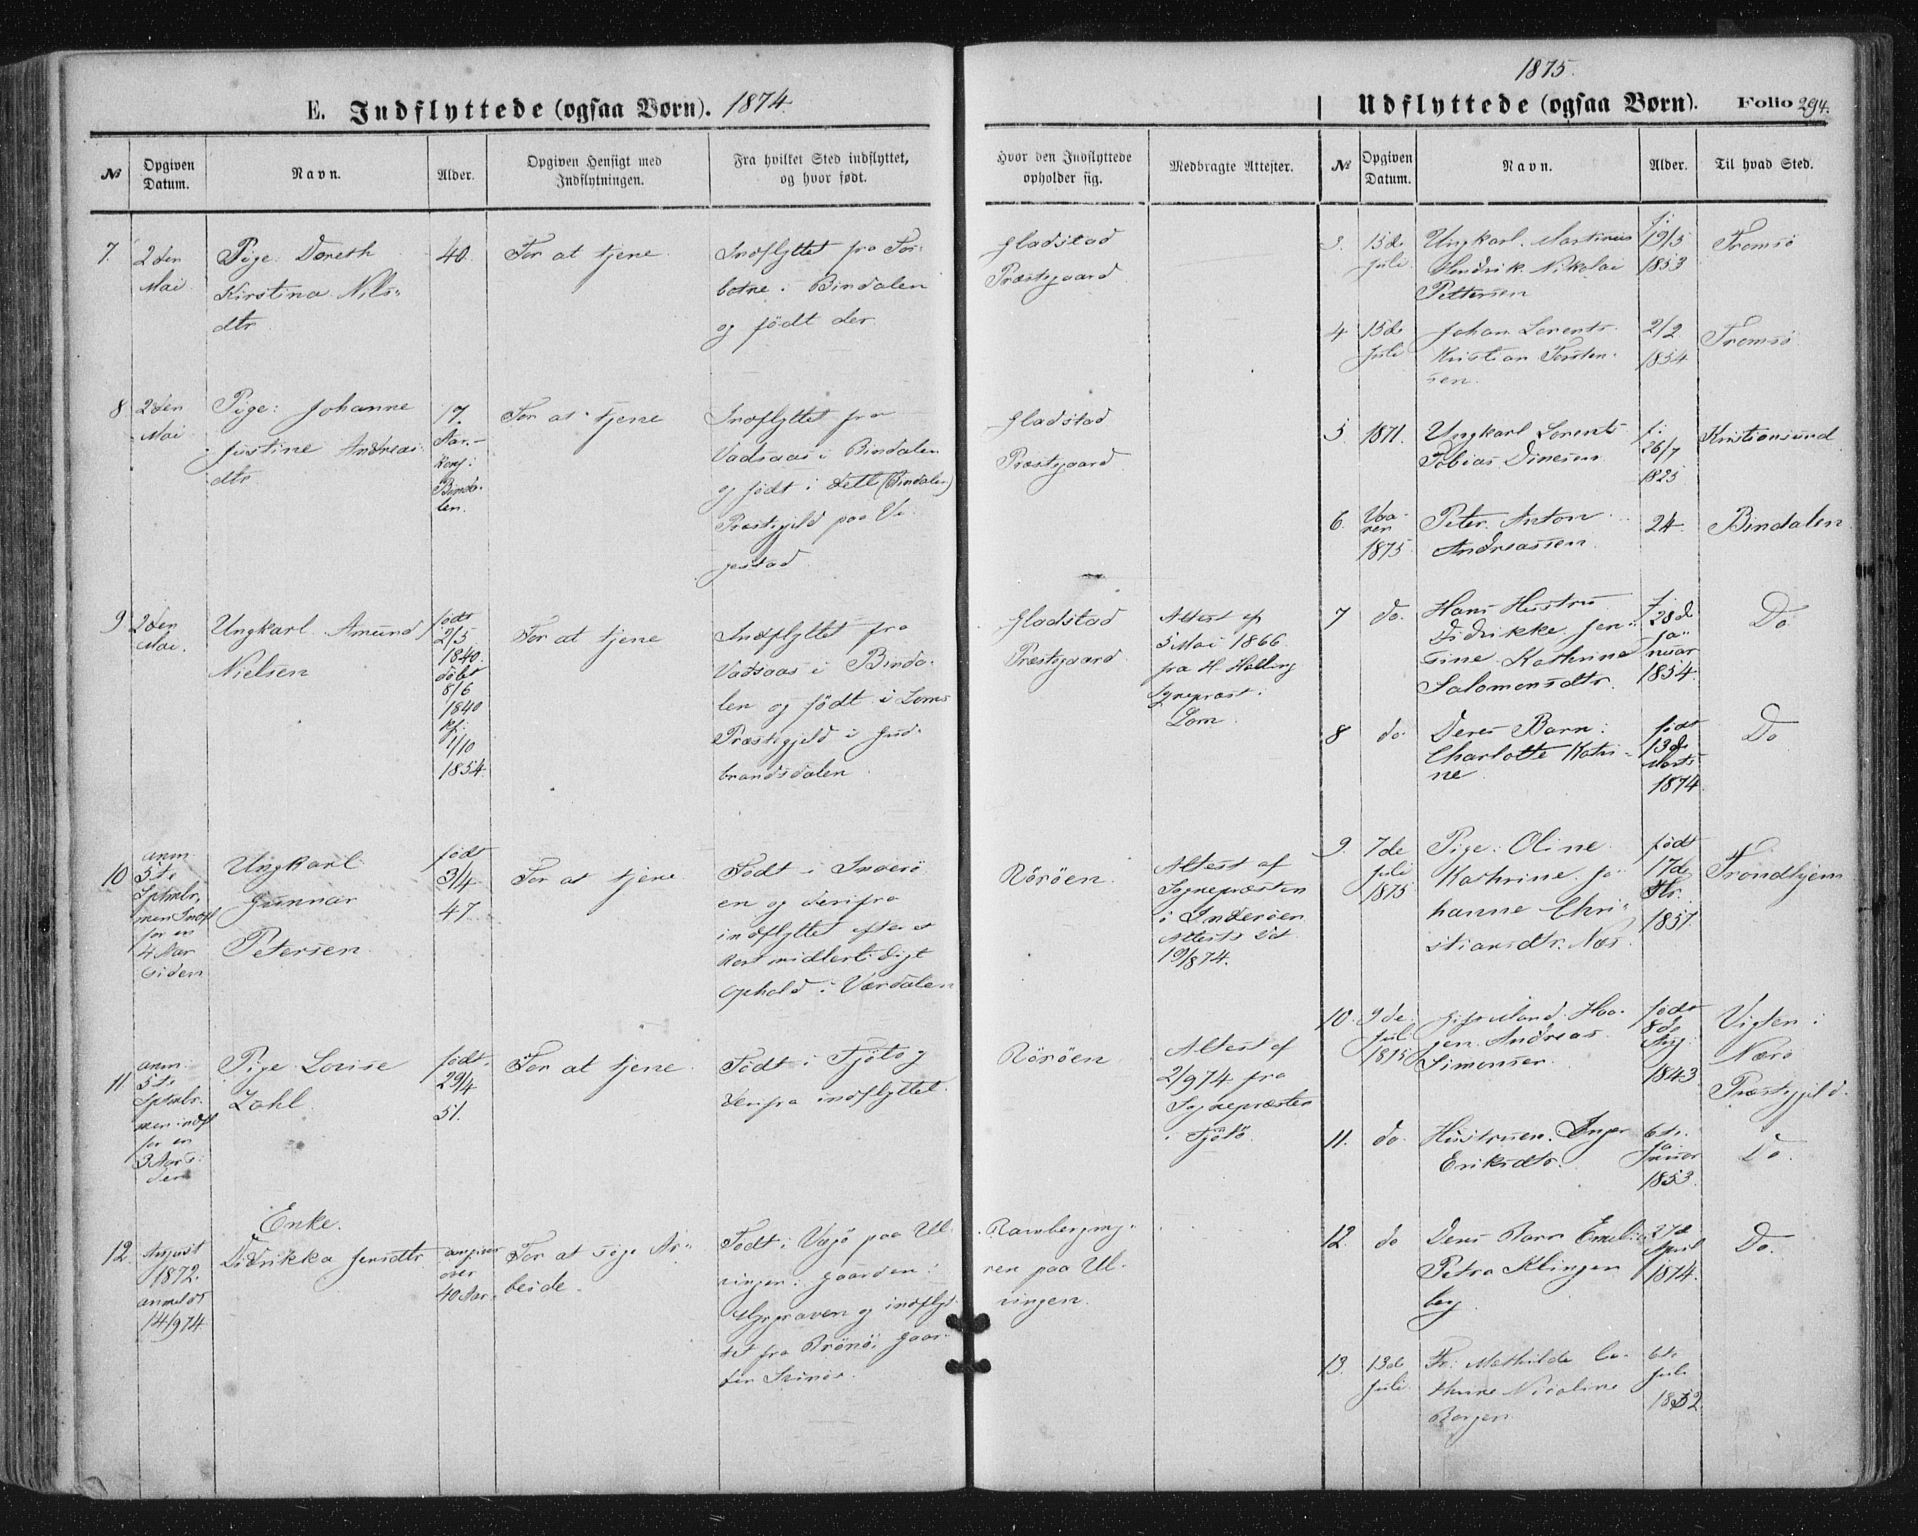 E. Indflyttede (ogsaa Børn). 1874.
№
Opgiven Datum.
Navn.
Alder.
Opgiven Hensigt med Indflytningen.
Fra hvilket Sted indflyttet, og hvor født.
Hvor den Indflyttede opholder sig.
Medbragte Attester.
7.
2den
Mai
Pige Doreth
Kirstina Nils-
dtr
40.
For at tjene.
Indflyttet fra
i Bindalen
og født der.
Gladstad
Præstegaard
8
2den
Mai
Pige: Johanne
Justine Andreas
dtr
17.
Aar.
Konf:
Binda-
len.
For at tjene
Indflyttet fra
Vadsaas i Bindalen
og født i dette (Bindalen)
Præstegjeld paa
Gladstad
Præstegaard
9
2den
Mai.
Ungkarl Amund
Nielsen
født
2/5
1840.
døbt
8/6
1840
kf:
1/10
1854.
For at tjene
Indflyttet fra
Vadsaas i Binda-
len og født i Loms
Præstegjeld i Gud-
brandsdalen.
Gladstad
Præstegaard.
Attest af
5 Mai 1866
fra H. Halling
Sognepræst i
Lom.
10
anm
5te
Sptmbr,
men indfl
for en
4 Aar
siden
Ungkarl
Gunnar
Petersen.
født
3/4
47.
For at tjene
Født i Inderø
en og derifra
indflyttet efter et
kort midlertidigt
Ophold i Værdalen
Rörøen.
Attest af
Sognepræsten
i Inderøen
Attests Dat.
19/8 74.
11.
anm.
5te
Sptmbr.
men indfl
for en
3 Aar si-
den
Pige Lovise
Zahl.
født.
29/4
51.
For at tjene.
Født i Tjøtø og
derifra indflyttet.
Rörøen
Attest af
2/9 74 fra
Sognepræsten
i Tjötö.
12.
August
1872.
anmeldt
14/9 74
Enke.
Didrikka Jensdtr
angiver
over
40 Aar.
For at søge Ar-
beide.
Født i Vegø paa Ul-
vingen i Gaarden
og indflyt-
tet fra Brønø, Gaar-
den
Rambergmy-
ren paa Ul-
vingen.
1875.
Udflyttede (ogsaa Børn).
Folio 294.
№
Opgiven Datum.
Navn.
Alder.
Til hvad Sted.
3.
15de
Juli
Ungkarl. Martinus
Hendrik Nikolai
Pettersen
f.
19/5
1853
Tromsö
4
15de
Juli
Johan Lorents
Kristian Torsten-
sen.
2/2
1854
Tromsö
5.
1871.
Ungkarl Lorents
Tobias Dinesen
f.
26/7
1825
Kristiansund
6.
Vaa-
ren
1875
Peter Anton
Andreassen.
24.
Bindalen
7
do
Hans Hustru
Didrikke Jen-
sine Kathrine
Salomonsdtr.
f.
28de
Ja-
nuar
1854.
Do
8
do
Deres Barn:
Charlotte Katri-
ne
født
13de
Marts
1874
Do
9.
7de
Juli
1875
Pige: Oline
Kathrine Jo-
hanne Chri-
stiansdtr. Næs.
født
17de
1851.
Trondhjem
10.
9de
Juli
1875
Gift Mand. Haa-
gen Andreas
Simonsen
født
8de
Aug
1843.
Vigten i
Nærö
Præstegjeld.
11.
do.
Hustruen. Inger
Eriksdtr.
6te
Ja-
nuar
1853.
Do.
12.
do
Deres Barn Emelie
Petra Klingen
berg.
27de
April
1874.
Do.
13.
13de
Juli.
Fr. Mathilde Ca-
thrine Nicoline
Borgen
6te
Juli
1852